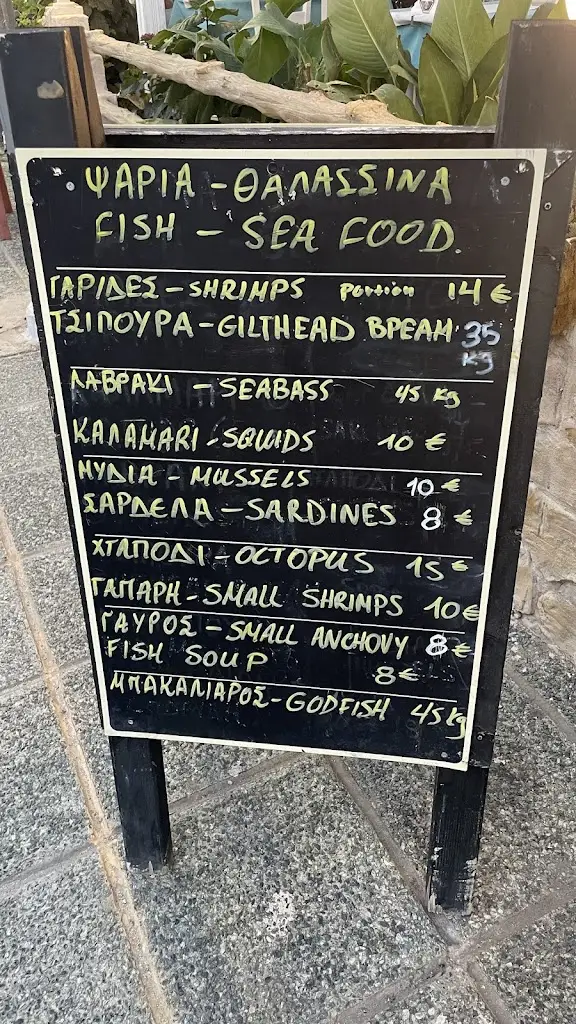 ΨΑΡΙΑ - ΘΑΛΑΣΣΙΝΑ
FISH - SEA FOOD
ΓΑΡΙΔΕΣ - SHRIMPS portion 14 €
ΤΣΙΠΟΥΡΑ - GILTHEAD BREAM 35 kg
ΛΑΒΡΑΚΙ - SEABASS 45 kg
ΚΑΛΑΜΑRI - SQUIDS 10 €
ΜΥΔΙΑ - MUSSELS 10 €
ΣΑΡΔΕΛΑ - SARDINES 8 €
ΧΤΑΠΟΔΙ - OCTOPUS 15 €
ΓΑΠΑΡΗ - SMALL SHRIMPS 10 €
ΓΑΥΡΟΣ - SMALL ANCHOVY 8 €
FISH SOUP 8 €
ΜΠΑΚΑΛΙΑΡΟΣ - GODFISH 45 kg